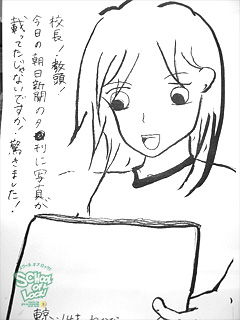 校長！教頭！
今日の朝日新聞の夕刊に写真が
載ってたじゃないですか！驚きました！
SCHOOL OF LOCK!